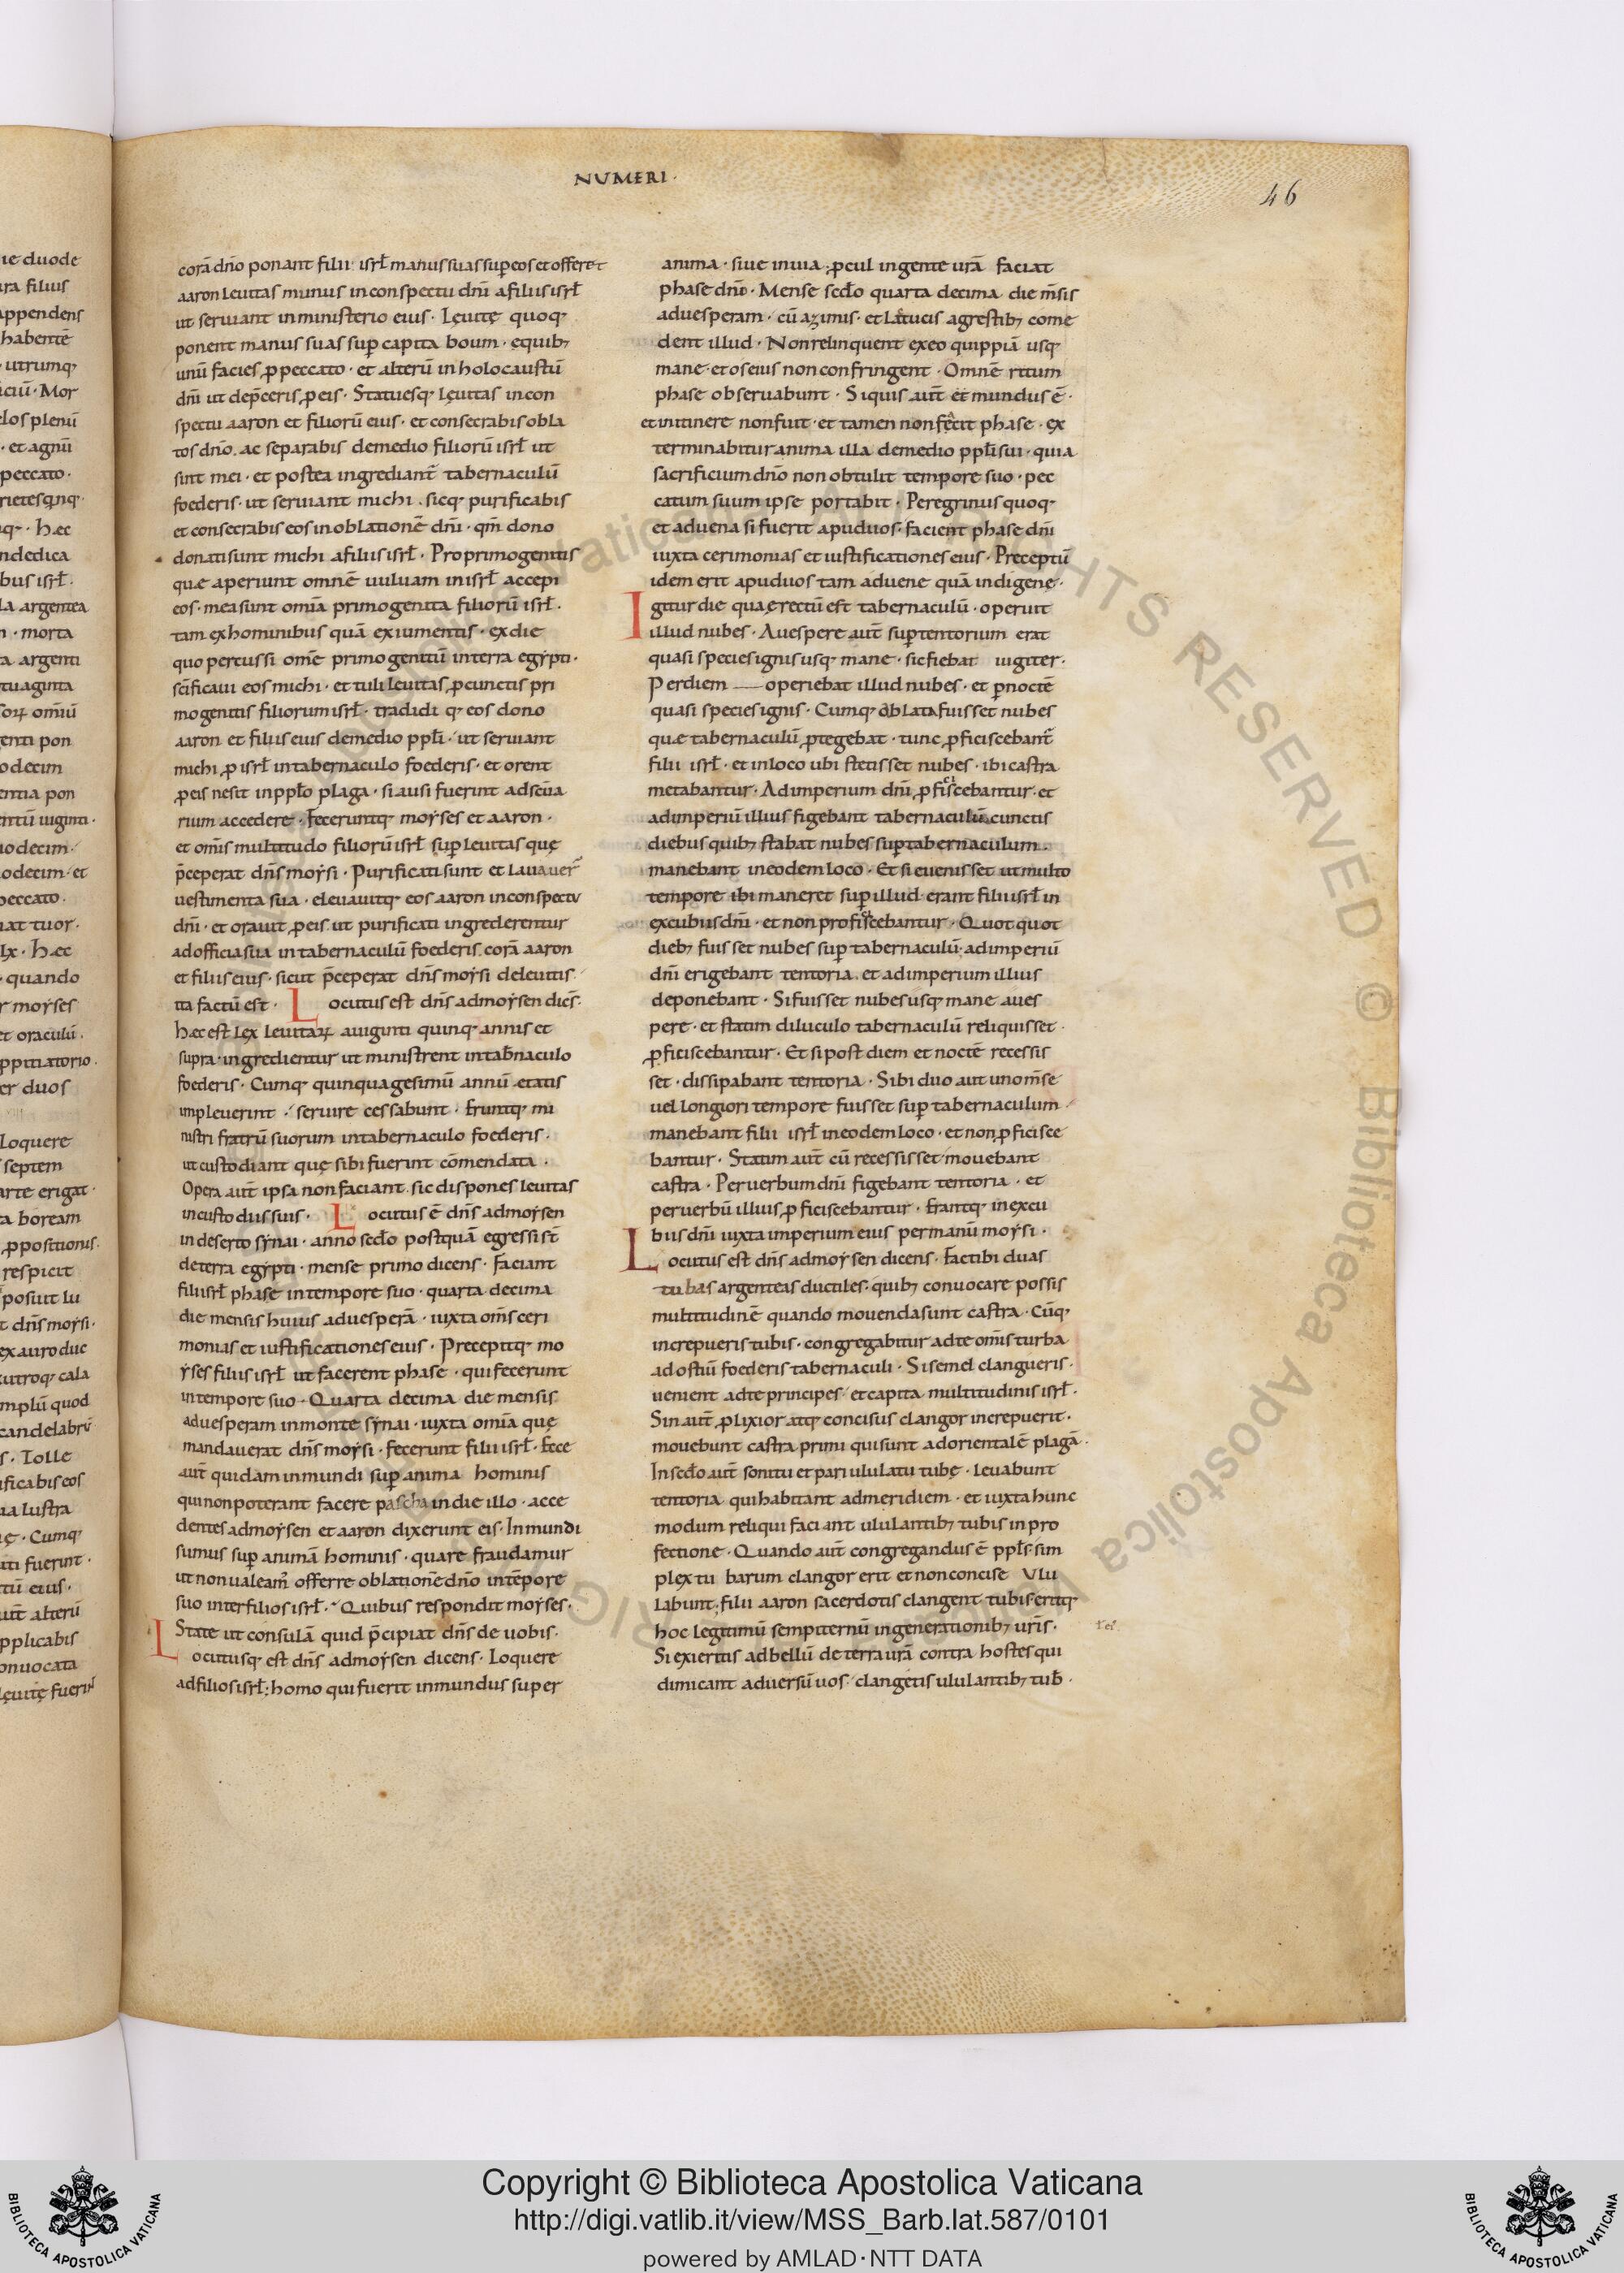 NUMERI·
46
corā dño ponant filii isrł manus suas sup eos et offeret
aaron leuitas munus in conspectu dñi a filiis isrł
ut seruiant in ministerio eius · Leuitę quoq;
ponent manus suas sup capita boum · equib;
unū facies p peccato · et alterū in holocaustū
dñi ut depceris p eis · Statuesq; leuitas in con
spectu aaron et filiorū eius · et consecrabis obla
tos dño. ac separabis de medio filiorū isrł ut
sint mei · et postea ingrediant tabernaculū
foederis · ut seruiant michi · sicq; purificabis
et consecrabis eos in oblationē dñi · qm̄ dono
donati sunt michi a filiis isrł · Pro primogenitis
quae aperiunt omnē uuluam in isrł accepi
eos · mea sunt om̄ia primogenita filiorū isrł ·
tam ex hominibus quā ex iumentis · ex die
quo percussi om̄e primogenitū in terra egypti ·
scificaui eos michi · et tuli leuitas p cunctis pri
mogenitis filiorum isrł · tradidi q; eos dono
aaron et filiis eius de medio ppłi · ut seruiant
michi p isrł in tabernaculo foederis · et orent
p eis ne sit in ppło plaga · si ausi fuerint ad scūa
rium accedere · Feceruntq; moyses et aaron ·
et om̄is multitudo filiorū isrł sup leuitas quę
p̄ceperat dñs moysi · Purificati sunt et lauauer
uestimenta sua · eleuauitq; eos aaron in conspectu
dñi · et orauit p eis ut purificati ingrederentur
ad officia sua in tabernaculū foederis corā aaron
et filiis eius · sicut p̄ceperat dñs moysi de leuitis ·
ita factū est · Locutus est dñs ad moysen dicēs ·
Haec est lex leuitarꝝ a uiginti quinq; annis et
supra · ingredientur ut ministrent in tabnaculo
foederis · Cumq; quinquagesimū annū etatis
impleuerint · seruire cessabunt · Eruntq; mi
nistri fratrū suorum in tabernaculo foederis ·
ut custodiant quę sibi fuerint cōmendata ·
Opera aut ipsa non faciant sic dispones leuitas
in custodiis suis · Locutus ē dñs ad moysen
in deserto synai · anno scdo postquā egressi st
de terra egypti · mense primo dicens · Faciant
filii isrł phase in tempore suo · quarta decima
die mensis huius ad uesperā · iuxta om̄s ceri
monias et iustificationes eius · Precepitq; mo
yses filiis isrł ut facerent phase · qui fecerunt
in tempore suo · Quarta decima die mensis
ad uesperam in monte synai · iuxta om̄ia quę
mandauerat dñs moysi · fecerunt filii isrł · Ecce
aut quidam inmundi sup anima hominis
qui non poterant facere pascha in die illo · acce
dentes ad moysen et aaron dixerunt eis · Inmundi
sumus sup animā hominis · quare fraudamur
ut non ualeam offerre oblationē dño in tēpore
suo inter filios isrł · Quibus respondit moyses ·
State ut consulā quid p̄cipiat dñs de uobis ·
Locutusq; est dñs ad moysen dicens · Loquere
ad filios isrł; homo qui fuerit inmundus super
anima · siue in uia p cul in gente urā faciat
phase dño · Mense scdo quarta decima die m̄sis
ad uesperam · cū azimis · et lactucis agrestib; come
dent illud · Non relinquent ex eo quippiā usq;
mane · et os eius non confringent · Omnē ritum
phase obseruabunt · Siquis aut et mundus ē ·
et in itinere non fuit · et tamen non fecit phase · ex
terminabitur anima illa de medio ppłi sui · quia
sacrificium dño non obtulit tempore suo · pec
catum suum ipse portabit · Peregrinus quoq;
et aduena si fuerit apud uos · facient phase dñi
iuxta cerimonias et iustificationes eius · Preceptū
idem erit apud uos tam aduene quā indigene ·
Igitur die qua erectū est tabernaculū · operuit
illud nubes · A uespere aut sup tentorium erat
quasi species ignis usq; mane · sic fiebat iugiter ·
Per diem operiebat illud nubes · et p noctē
quasi species ignis · Cumq; oblata fuisset nubes
quae tabernaculū ptegebat · tunc pficiscebant
filii isrł · et in loco ubi stetisset nubes · ibi castra
metabantur · Ad imperium dñi pficiscebantur · et
ad imperiū illius figebant tabernaculū cunctis
diebus quib; stabat nubes sup tabernaculum ·
manebant in eodem loco · Et si euenisset ut multo
tempore ibi maneret sup illud · erant filii isrł in
excubiis dñi · et non proficiscebantur · Quot quot
dieb; fuisset nubes sup tabernaculū · ad imperiū
dñi erigebant tentoria · et ad imperium illius
deponebant · Si fuisset nubes usq; mane a ues
pere · et statim diluculo tabernaculū reliquisset ·
pficiscebantur · Et si post diem et noctē recessis
set · dissipabant tentoria · Si biduo aut uno m̄se
uel longiori tempore fuisset sup tabernaculum ·
manebant filii isrł in eodem loco · et non pficisce
bantur · Statim aut cū recessisset mouebant
castra · Per uerbum dñi figebant tentoria · et
per uerbū illius pficiscebantur · Erantq; in excu
biis dñi iuxta imperium eius per manū moysi ·
Locutus est dñs ad moysen dicens · Fac tibi duas
tubas argenteas ductiles · quib; conuocare possis
multitudinē quando mouenda sunt castra · Cūq;
increpueris tubis · congregabitur ad te om̄is turba
ad ostiū foederis tabernaculi · Si semel clangueris ·
uenient ad te principes · et capita multitudinis isrł ·
Sin aut plixior atq; concisus clangor increpuerit ·
mouebunt castra primi qui sunt ad orientalē plagā ·
In scdo aut sonitu et pari ululatu tubę · leuabunt
tentoria qui habitant ad meridiem · et iuxta hunc
modum reliqui faciant ululantib; tubis in pro
fectione · Quando aut congregandus ē ppłs · sim
plex tubarum clangor erit et non concise Ulu
labunt; filii aaron sacerdotis clangent tubis eritq;
hoc legitimū sempiternū in generationib; uris ·
Si exieritis ad bellū de terra urā contra hostes qui
dimicant aduersū uos · clangetis ululantib; tub ·
Copyright © Biblioteca Apostolica Vaticana
http://digi.vatlib.it/view/MSS_Barb.lat.587/0101
powered by AMLAD·NTT DATA
BIBLIOTECA APOSTOLICA VATICANA
BIBLIOTECA APOSTOLICA VATICANA